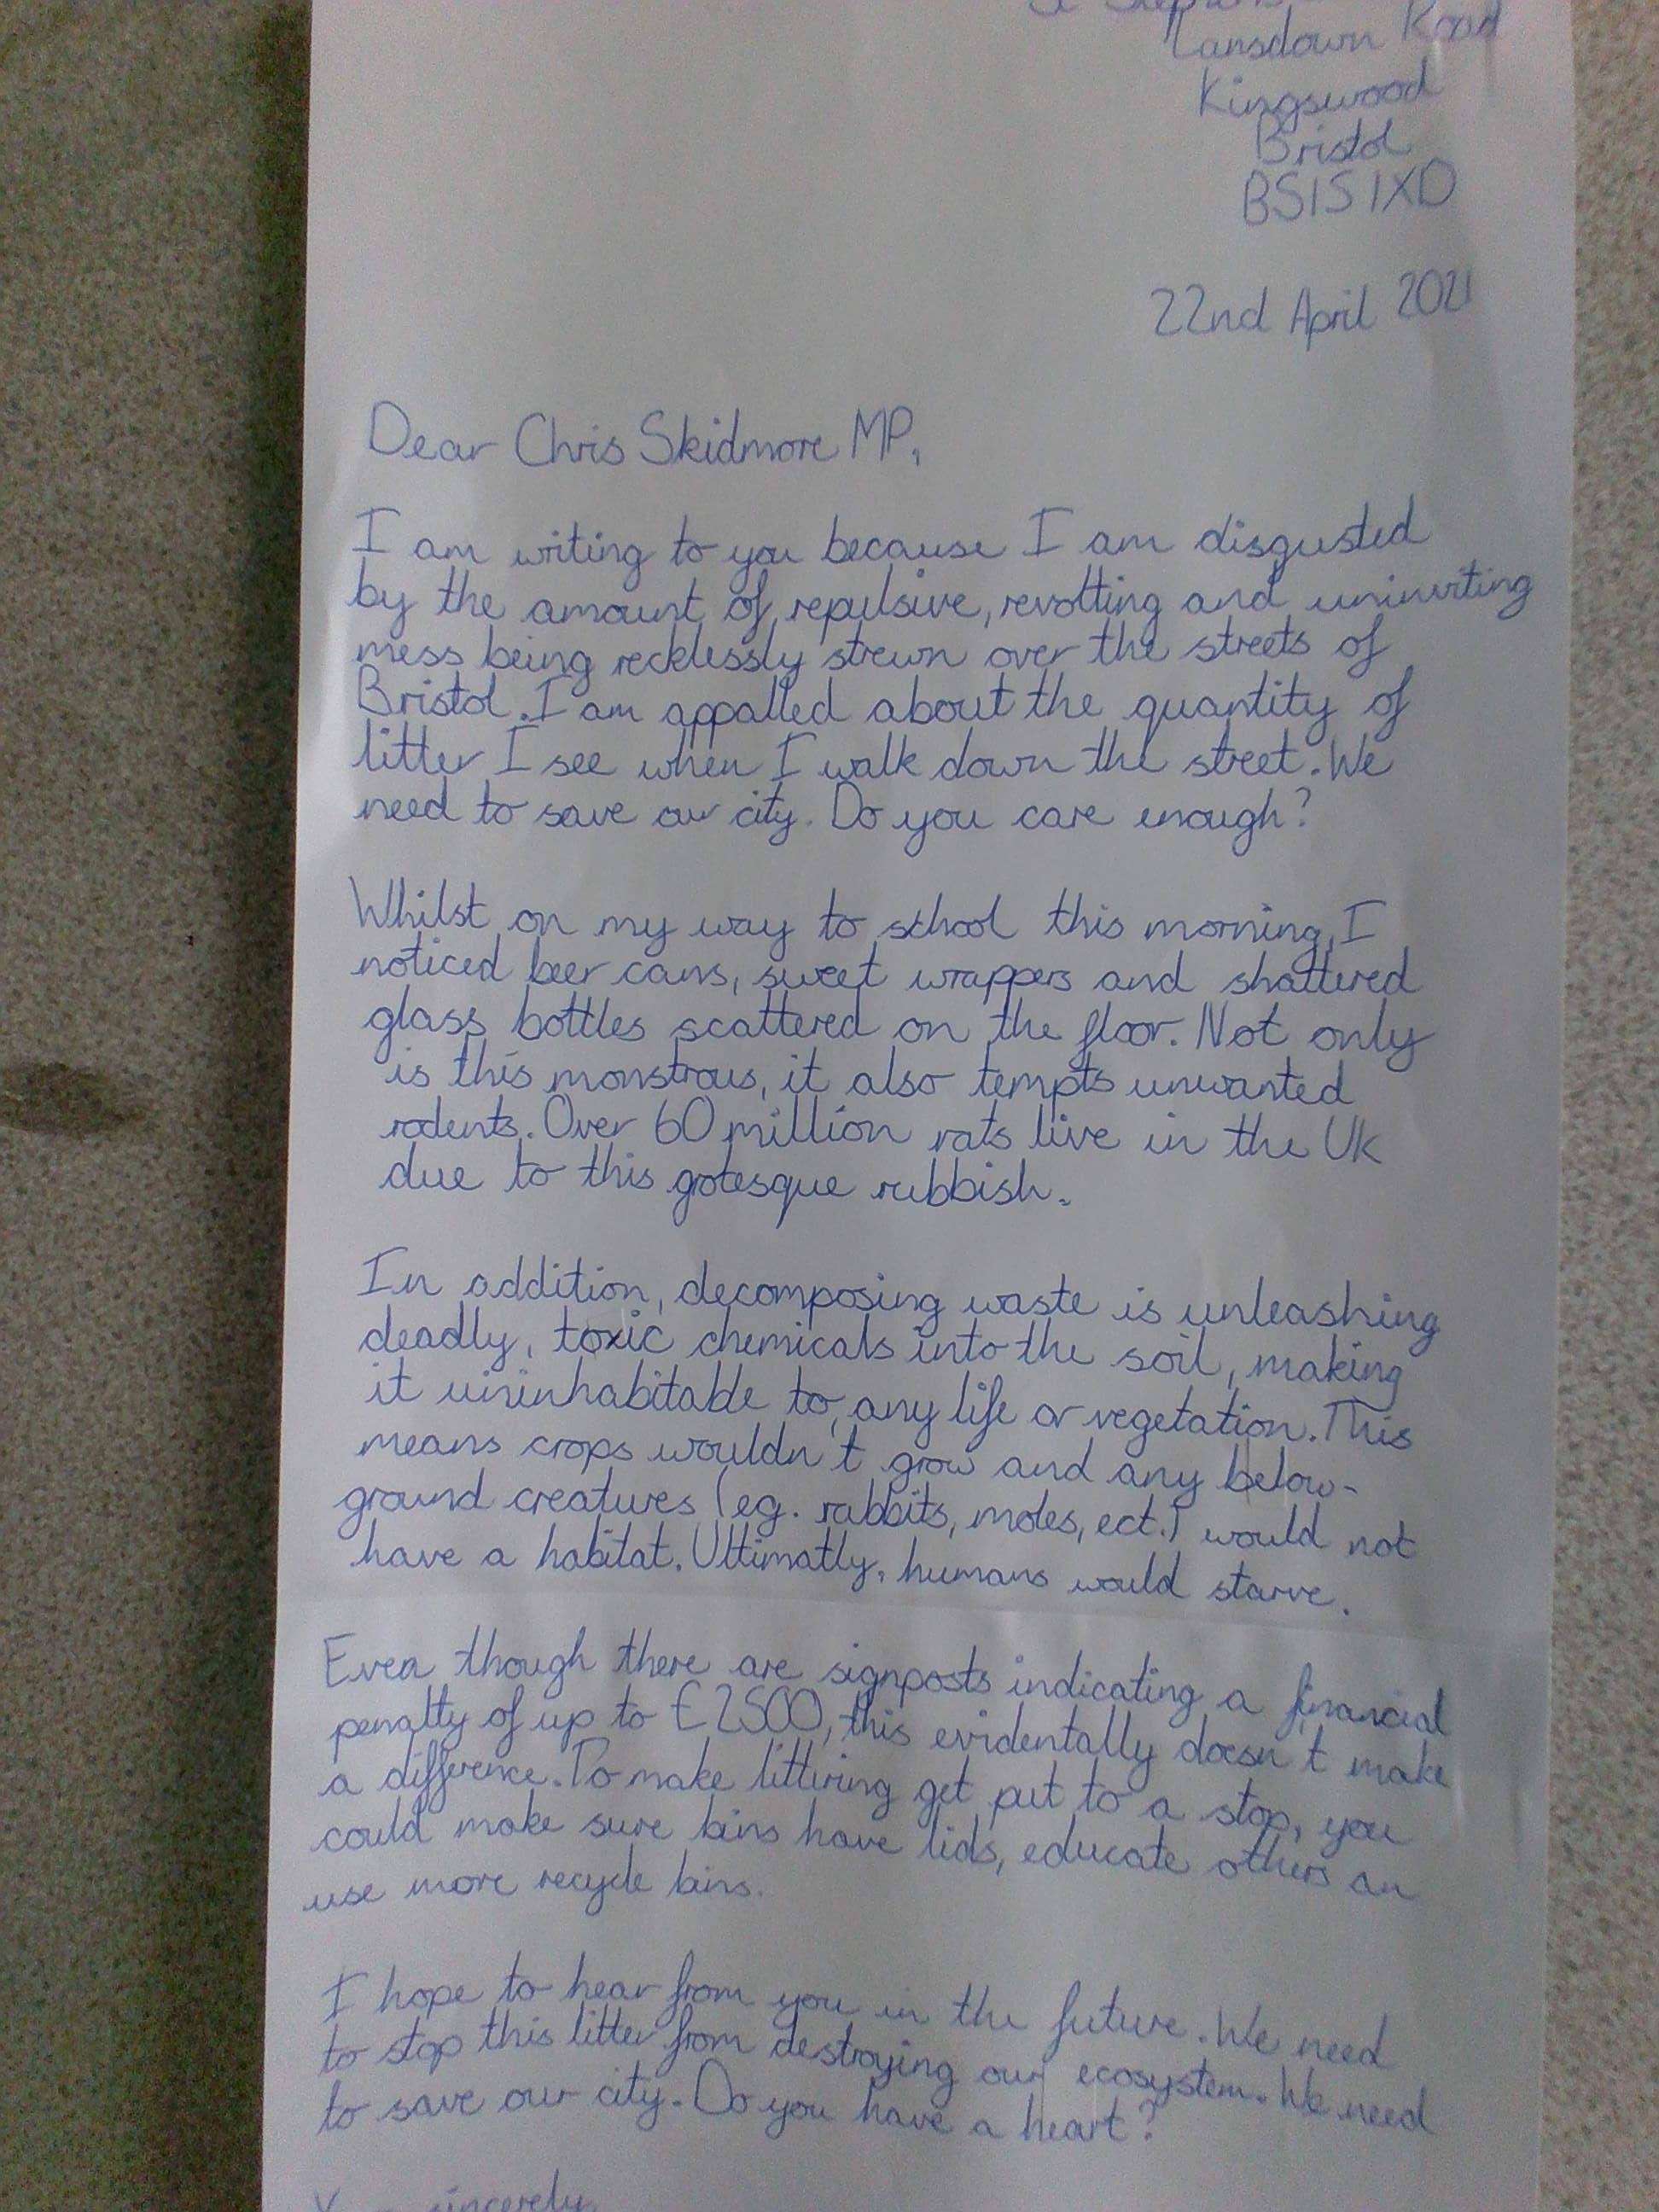 Lansdown Road
Kingswood
Bristol
BS15 1XD
22nd April 2021
Dear Chris Skidmore MP,
I am writing to you because I am disgusted
by the amount of repulsive, revolting and uninviting
mess being recklessly strewn over the streets of
Bristol. I am appalled about the quantity of
litter I see when I walk down the street. We
need to save our city. Do you care enough?
Whilst on my way to school this morning, I
noticed beer cans, sweet wrappers and shattered
glass bottles scattered on the floor. Not only
is this monstrous, it also tempts unwanted
rodents. Over 60 million rats live in the UK
due to this grotesque rubbish.
In addition, decomposing waste is unleashing
deadly, toxic chemicals into the soil, making
it uninhabitable to any life or vegetation. This
means crops wouldn't grow and any below-
ground creatures (eg. rabbits, moles, ect.) would not
have a habitat. Ultimatly, humans would starve.
Even though there are signposts indicating a financial
penalty of up to £2500, this evidentally doesn't make
a difference. To make littering get put to a stop, you
could make sure bins have lids, educate others an
use more recycle bins.
I hope to hear from you in the future. We need
to stop this litter from destroying our ecosystem. We need
to save our city. Do you have a heart?
sincerely